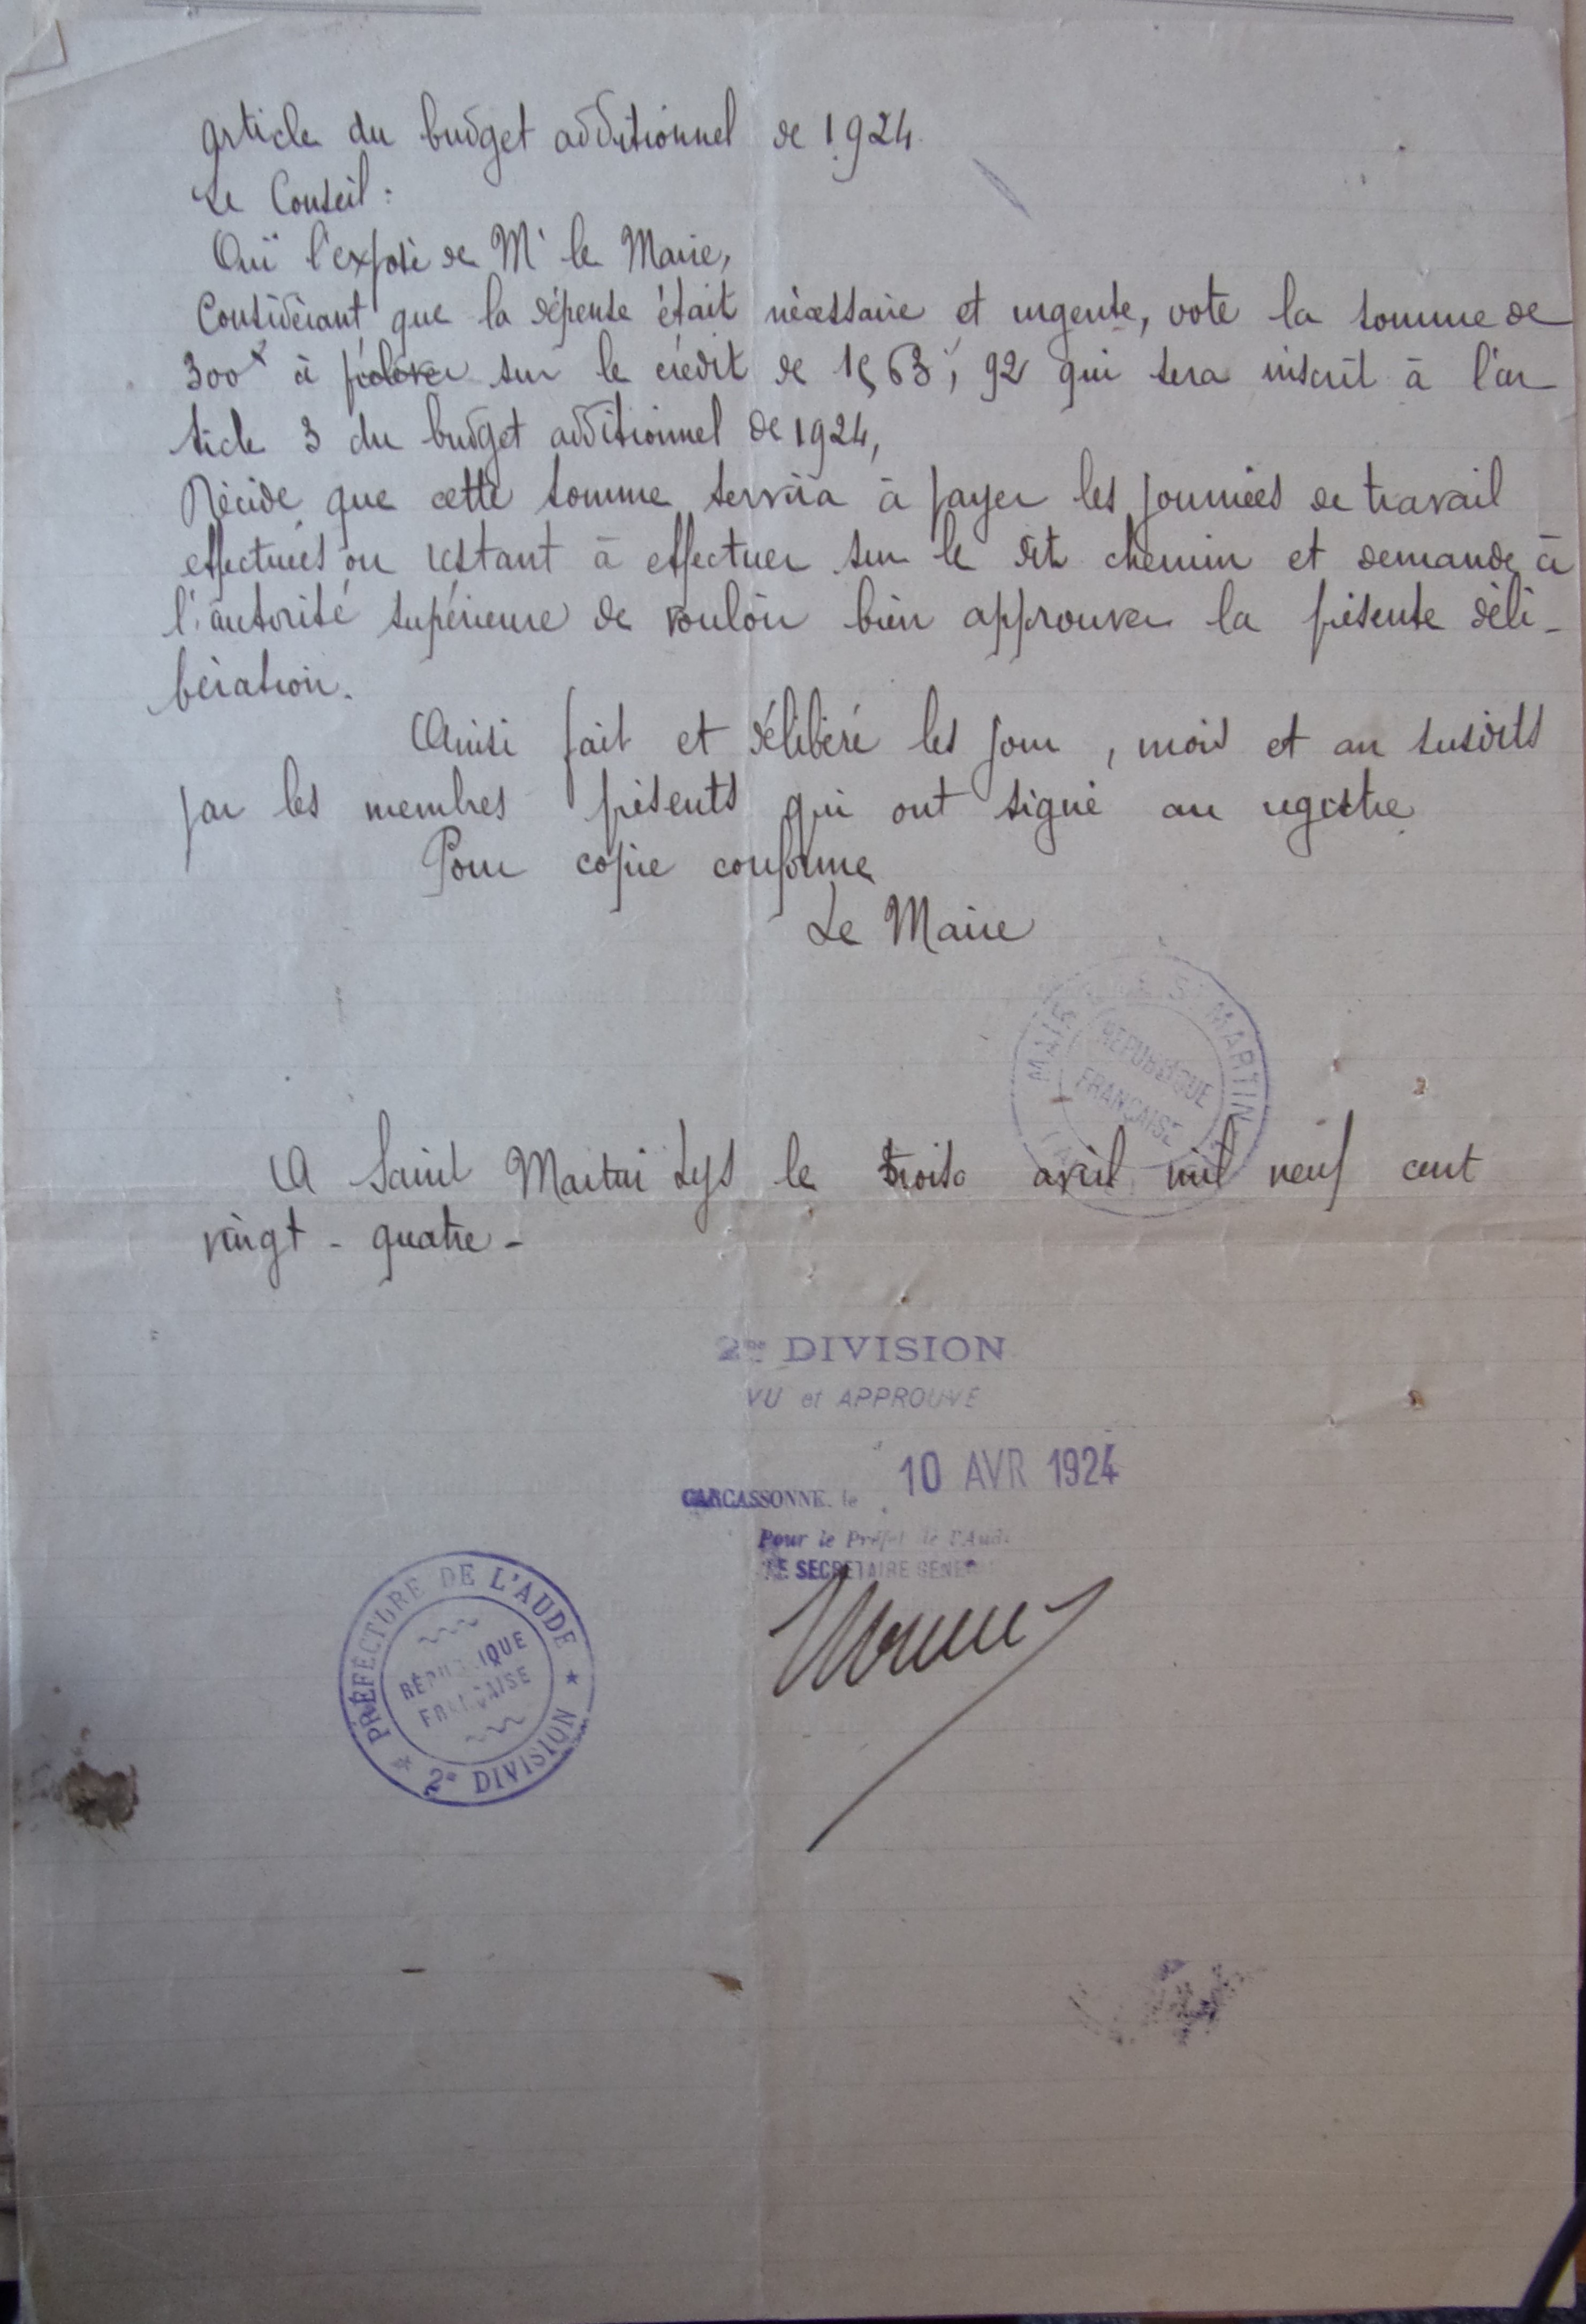 article du budget additionnel de 1924.
Le Conseil :
Ouï l'exposé de Mr le Maire,
Considérant que la dépense était nécessaire et urgente, vote la somme de
300f à prélever sur le crédit de 1563f, 92 qui sera inscrit à l'ar
ticle 3 du budget additionnel de 1924,
Décide que cette somme servira à payer les journées de travail
effectuées ou restant à effectuer sur le dit chemin et demande à
l'autorité supérieure de vouloir bien approuver la présente déli-
bération.
Ainsi fait et délibéré les jour, mois et an susdits
par les membres présents qui ont signé au registre.
Pour copie conforme
Le Maire
MAIRIE DE ST MARTIN
RÉPUBLIQUE
FRANÇAISE
A Saint Martin Lys le trois avril mil neuf cent
vingt - quatre -
2me DIVISION
VU et APPROUVÉ
CARCASSONNE, le 10 AVR 1924
Pour le Préfet de l'Aude
LE SECRÉTAIRE GÉNÉR
PRÉFECTURE DE L'AUDE
RÉPUBLIQUE
FRANÇAISE
2e DIVISION